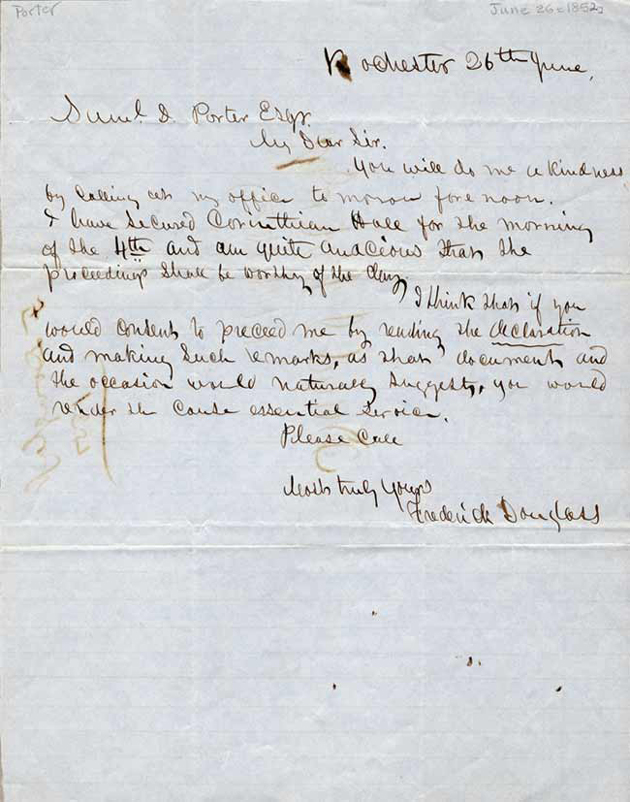 Porter
June 26 1852
Rochester 26th June.
Saml. D. Porter Esqr.
My Dear Sir.
You will do me a kindness
by calling at my office to morow forenoon.
I have secured Corinthian Hall for the morning
of the 4th and am quite
that the
proceedings shall be worthy of the day.
I think that if you
would consent to preceed me by reading the declaration
and making such remarks, as that document and
the occasion would naturally suggest, you would
render the cause essential service.
Please Call
Most truly yours
Frederick Douglass